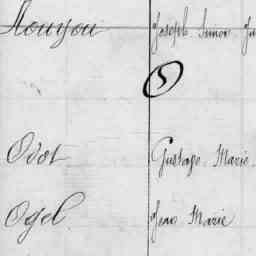 Nouyou Joseph Simon
5
Odot Gustave Marie
Ogel Jean Marie